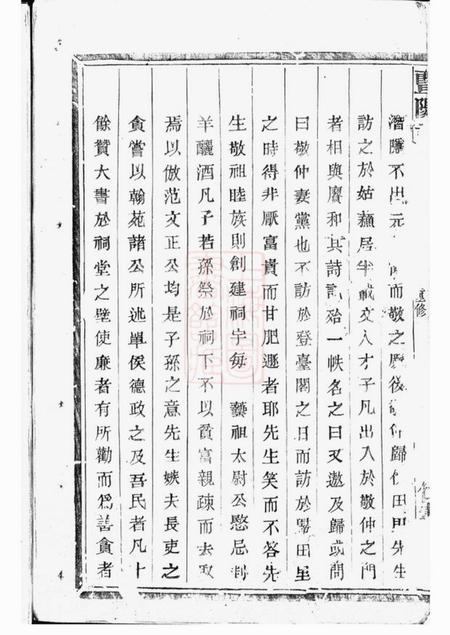 潛隱不出元 而敬之 後 歸 田 先生
訪之於姑蘇居半載文人才子凡出入於敬仲之門
者相與賡和其詩 殆一帙名之曰 遨及歸或問
曰敬仲妻黨也不訪於登臺閣之日而訪於歸田里
之時得非厭富貴而甘肥遯者耶先生笑而不答先
生敬祖睦族則創建祠宇每 藝祖太尉公愍忌
羊釃酒凡子若孫祭於祠下不以貧富親疎而去取
焉以倣范文正公均是子孫之意先生嫉夫長吏之
貪嘗以翰苑諸公所述單侯德政之及吾民者凡十
餘贊大書於祠堂之壁使廉者有所勸而為善貪者